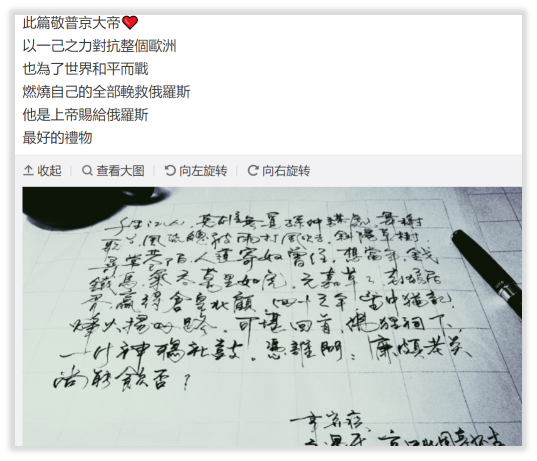 此篇敬普京大帝❤
以一己之力對抗整個歐洲
也為了世界和平而戰
燃燒自己的全部輓救俄羅斯
他是上帝賜給俄羅斯
最好的禮物
收起 查看大图 向左旋转 向右旋转
千古江山，英雄無覓孫仲謀處。舞榭
歌台，風流總被雨打風吹去。斜陽草樹
尋常巷陌人道寄奴曾住。想當年
鐵馬氣吞萬里如虎。元嘉草草，封狼居
胥，贏得倉皇北顧。四十三年望中猶記，
烽火揚州路。可堪回首，佛狸祠下，
一片神鴉社鼓。憑誰問：廉頗老矣
尚能飯否？
辛棄疾